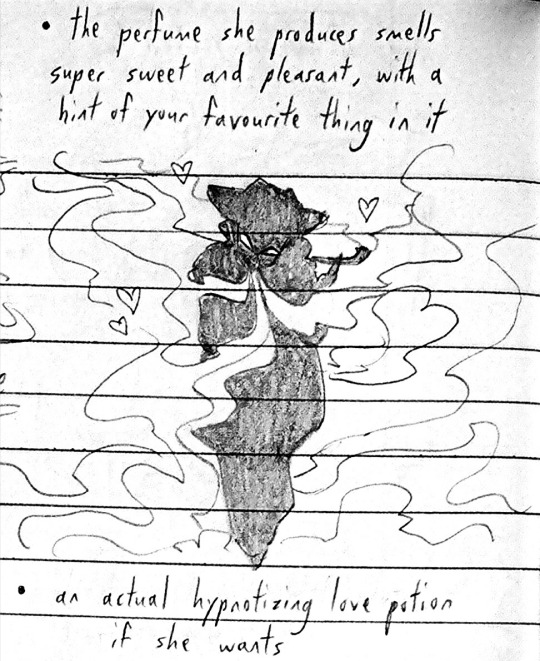 • the perfume she produces smells
super sweet and pleasant, with a
hint of your favourite thing in it
• an actual hypnotizing love potion
if she wants